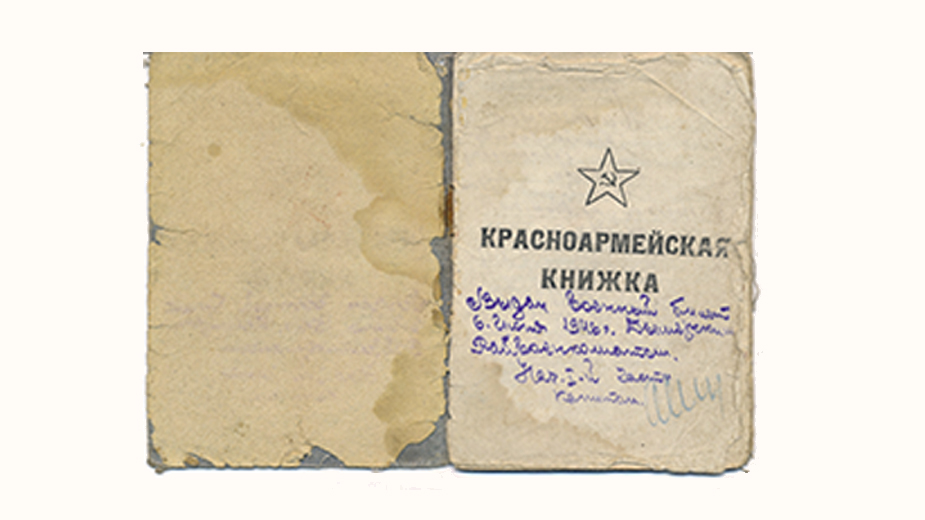 КРАСНОАРМЕЙСКАЯ
КНИЖКА
Выдан Военный билет
6. Июля 1946 г.
Райвоенкоматом.
Нач. 2-й части
капитан